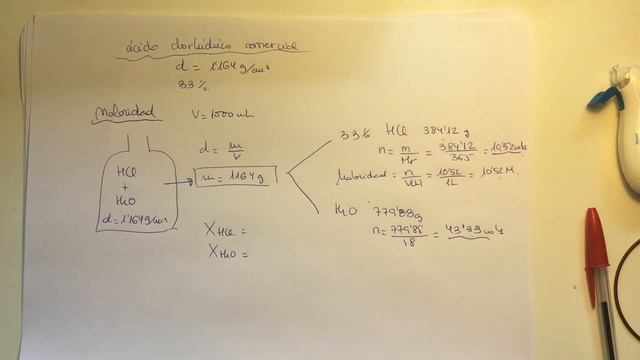 ácido clorhídrico comercial
d = 1'164 g/cm³
33 %.
Molaridad
V = 1000 mL
HCl
+
H2O
d = 1'164 g/cm³
d = m/V
m = 1164 g.
X HCl =
X H2O =
33% HCl 384'12 g.
n = m/Mr = 384'12/36'5 = 10'52 mols
Molaridad = n/V(L) = 10'52/1L = 10'52 M.
H2O 779'88 g
n = 779'88/18 = 43'33 mols